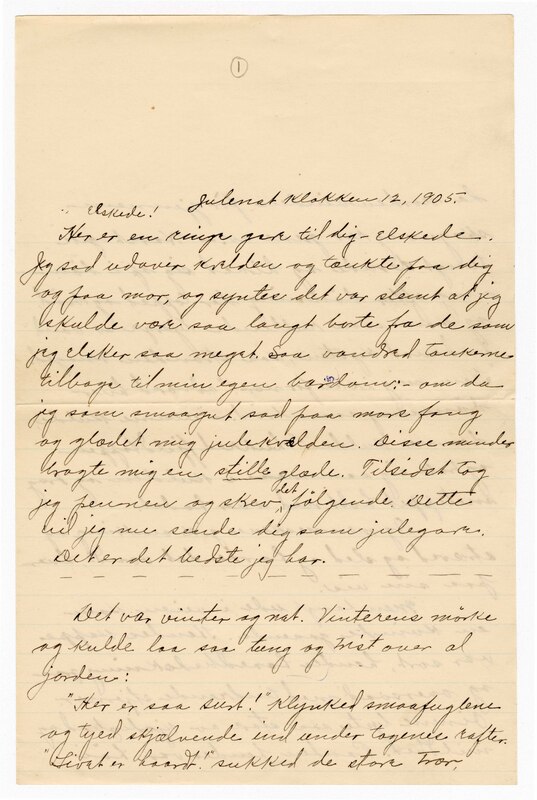 1
Julenat klokken 12, 1905.
Elskede!
Her er en ringe gave til dig - elskede.
Jeg sad udover kvelden og tænkte paa dig
og paa mor, og syntes det var slemt at jeg
skulde være saa langt borte fra de som
jeg elsker saa meget. Saa vandred tankerne
tilbage til min egen bardom: - om da
jeg som smaagut sad paa mors fang
og glædet mig julekvelden. Disse minder
bragte mig en stille glæde. Tilsidst tog
jeg pennen og skrev det følgende. Dette
vil jeg nu sende dig som julegave.
Det er det bedste jeg har.
Det var vinter og nat. Vinterens mörke
og kulde laa saa tung og trist over al
jorden:
"Her er saa surt!" klynked smaafuglene
og tyed skjælvende ind under tagenes rafter.
"Livet er haardt!" sukked de store trær,